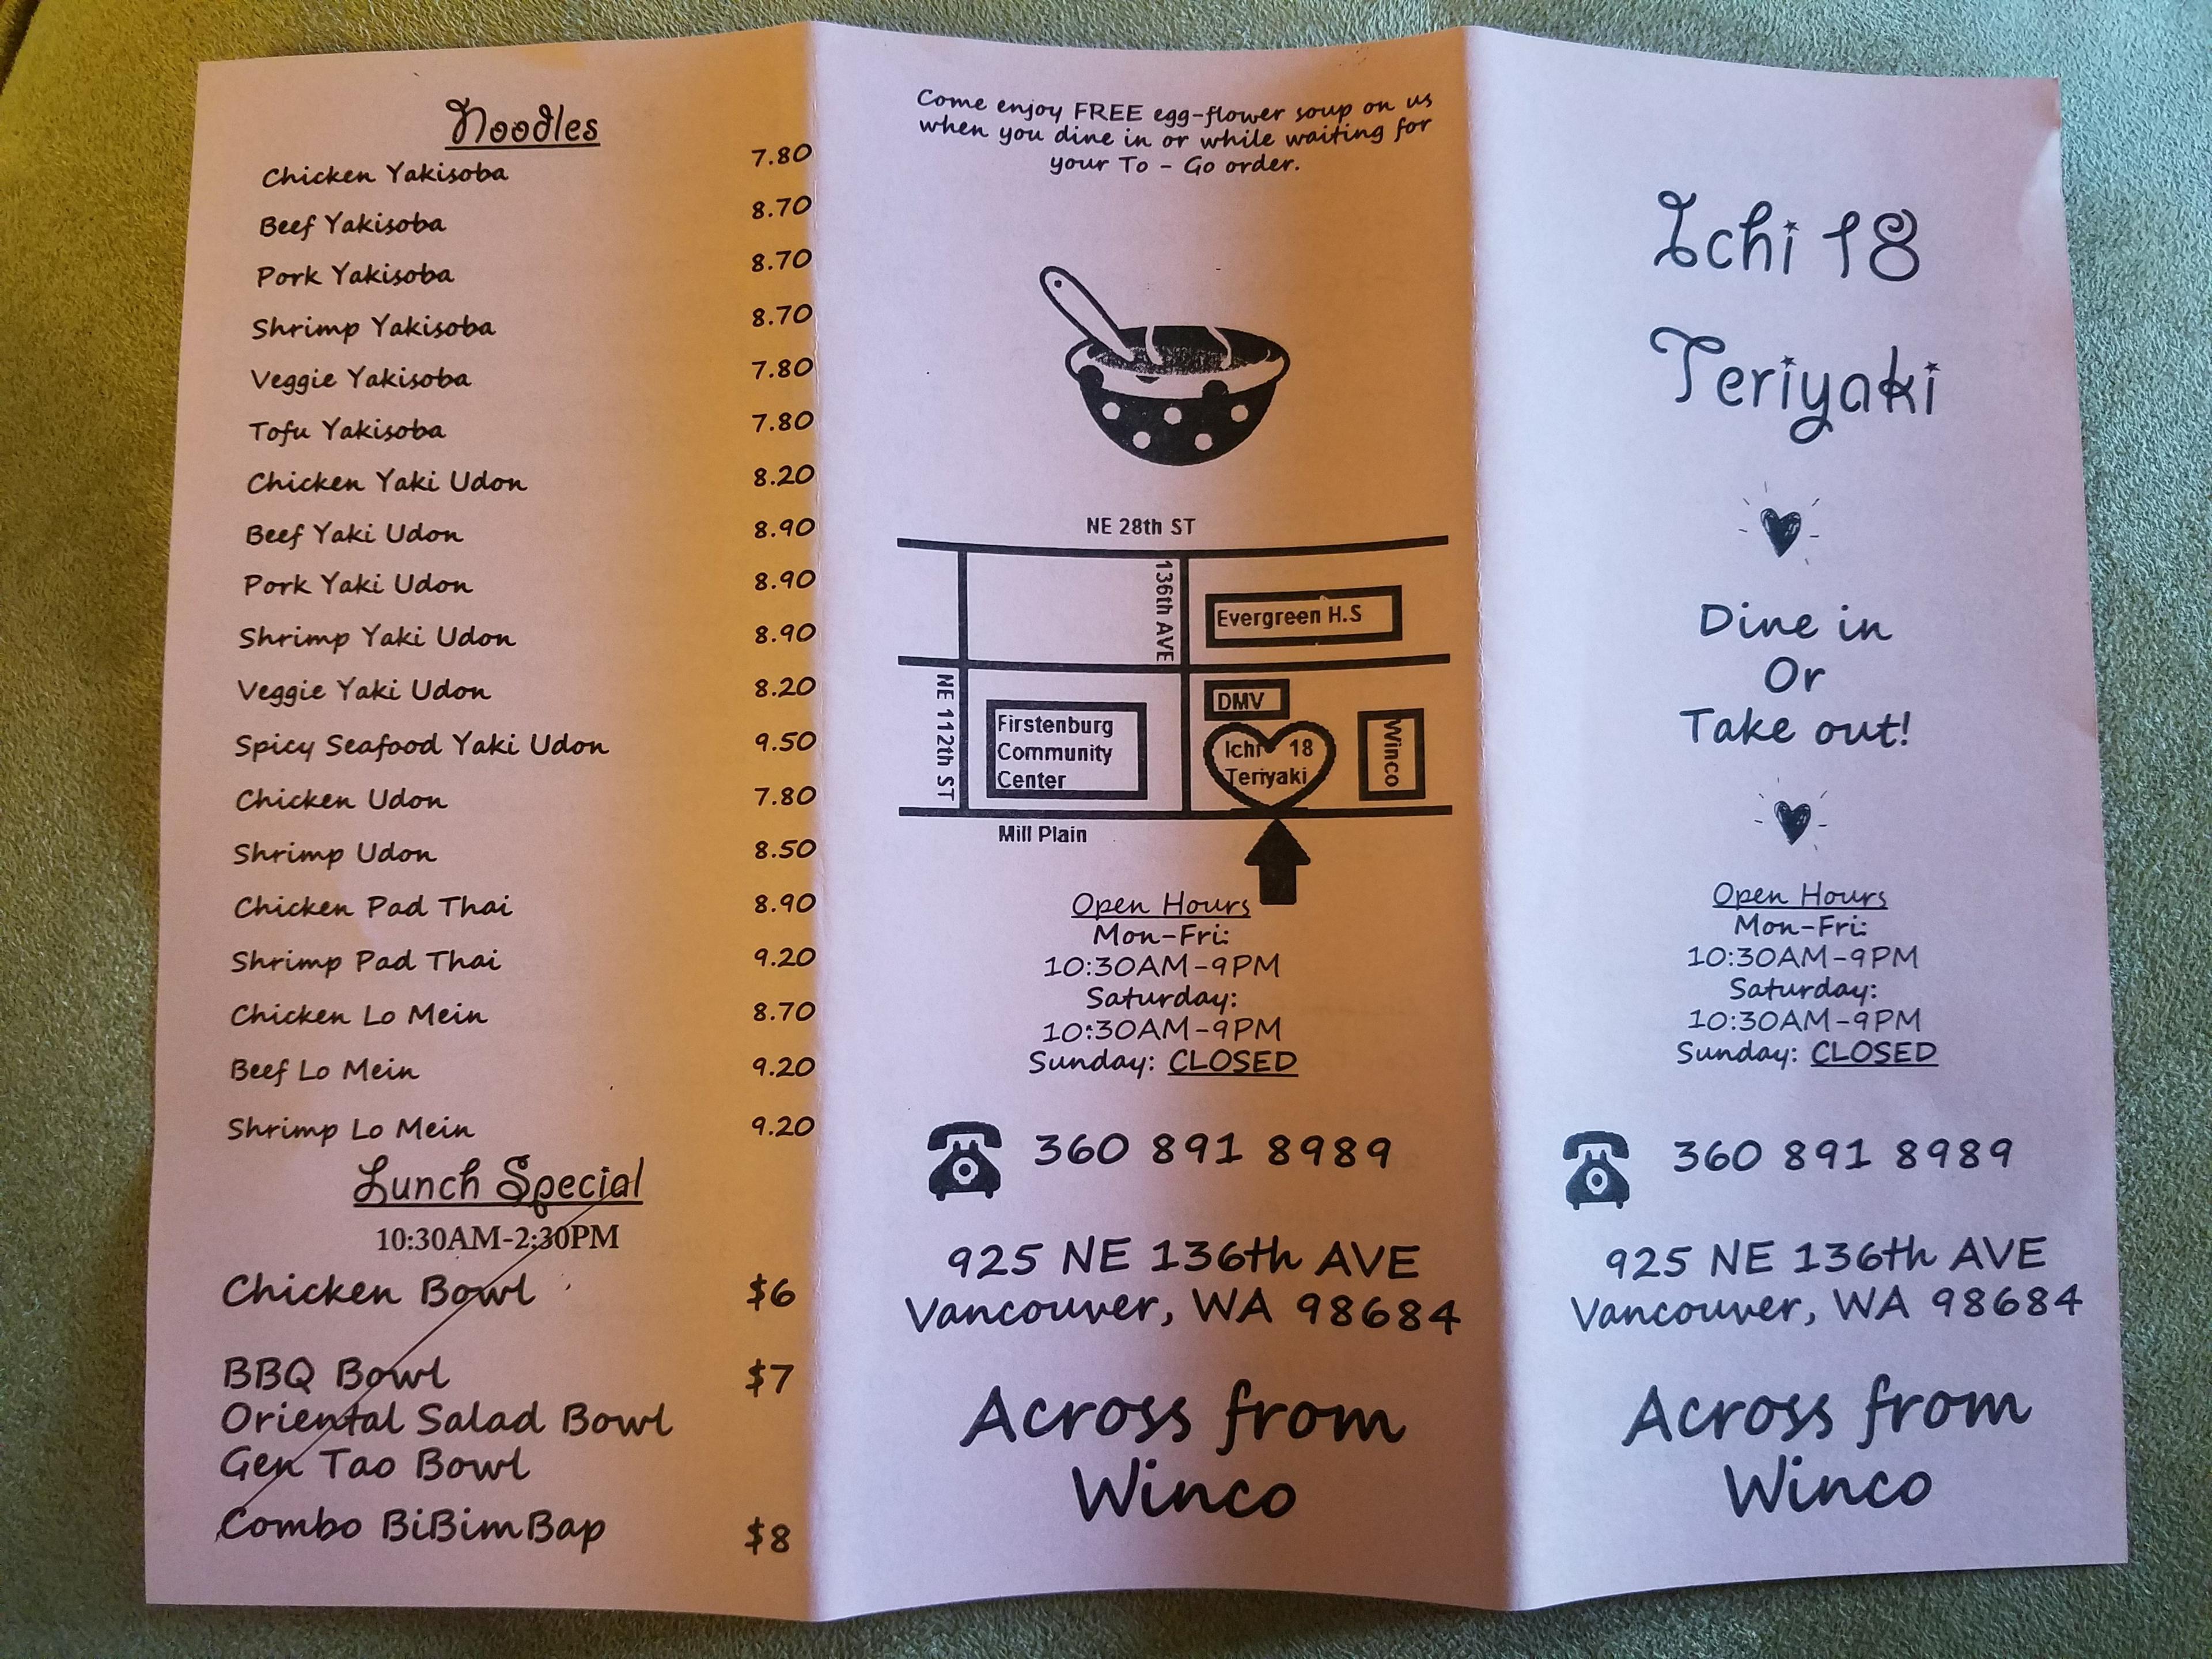 Noodles
Chicken Yakisoba 7.80
Beef Yakisoba 8.70
Pork Yakisoba 8.70
Shrimp Yakisoba 8.70
Veggie Yakisoba 7.80
Tofu Yakisoba 7.80
Chicken Yaki Udon 8.20
Beef Yaki Udon 8.90
Pork Yaki Udon 8.90
Shrimp Yaki Udon 8.90
Veggie Yaki Udon 8.20
Spicy Seafood Yaki Udon 9.50
Chicken Udon 7.80
Shrimp Udon 8.50
Chicken Pad Thai 8.90
Shrimp Pad Thai 9.20
Chicken Lo Mein 8.70
Beef Lo Mein 9.20
Shrimp Lo Mein 9.20
Lunch Special
10:30AM-2:30PM
Chicken Bowl $6
BBQ Bowl $7
Oriental Salad Bowl
Gen Tao Bowl
Combo BiBimBap $8
Come enjoy FREE egg-flower soup on us
when you dine in or while waiting for
your To - Go order.
NE 28th ST
136th AVE
Evergreen H.S
NE 112th ST
Firstenburg
Community
Center
DMV
Ichi 18
Teriyaki
Winco
Mill Plain
Open Hours
Mon-Fri:
10:30AM-9PM
Saturday:
10:30AM-9PM
Sunday: CLOSED
360 891 8989
925 NE 136th AVE
Vancouver, WA 98684
Across from
Winco
Ichi 18
Teriyaki
Dine in
Or
Take out!
Open Hours
Mon-Fri:
10:30AM-9PM
Saturday:
10:30AM-9PM
Sunday: CLOSED
360 891 8989
925 NE 136th AVE
Vancouver, WA 98684
Across from
Winco